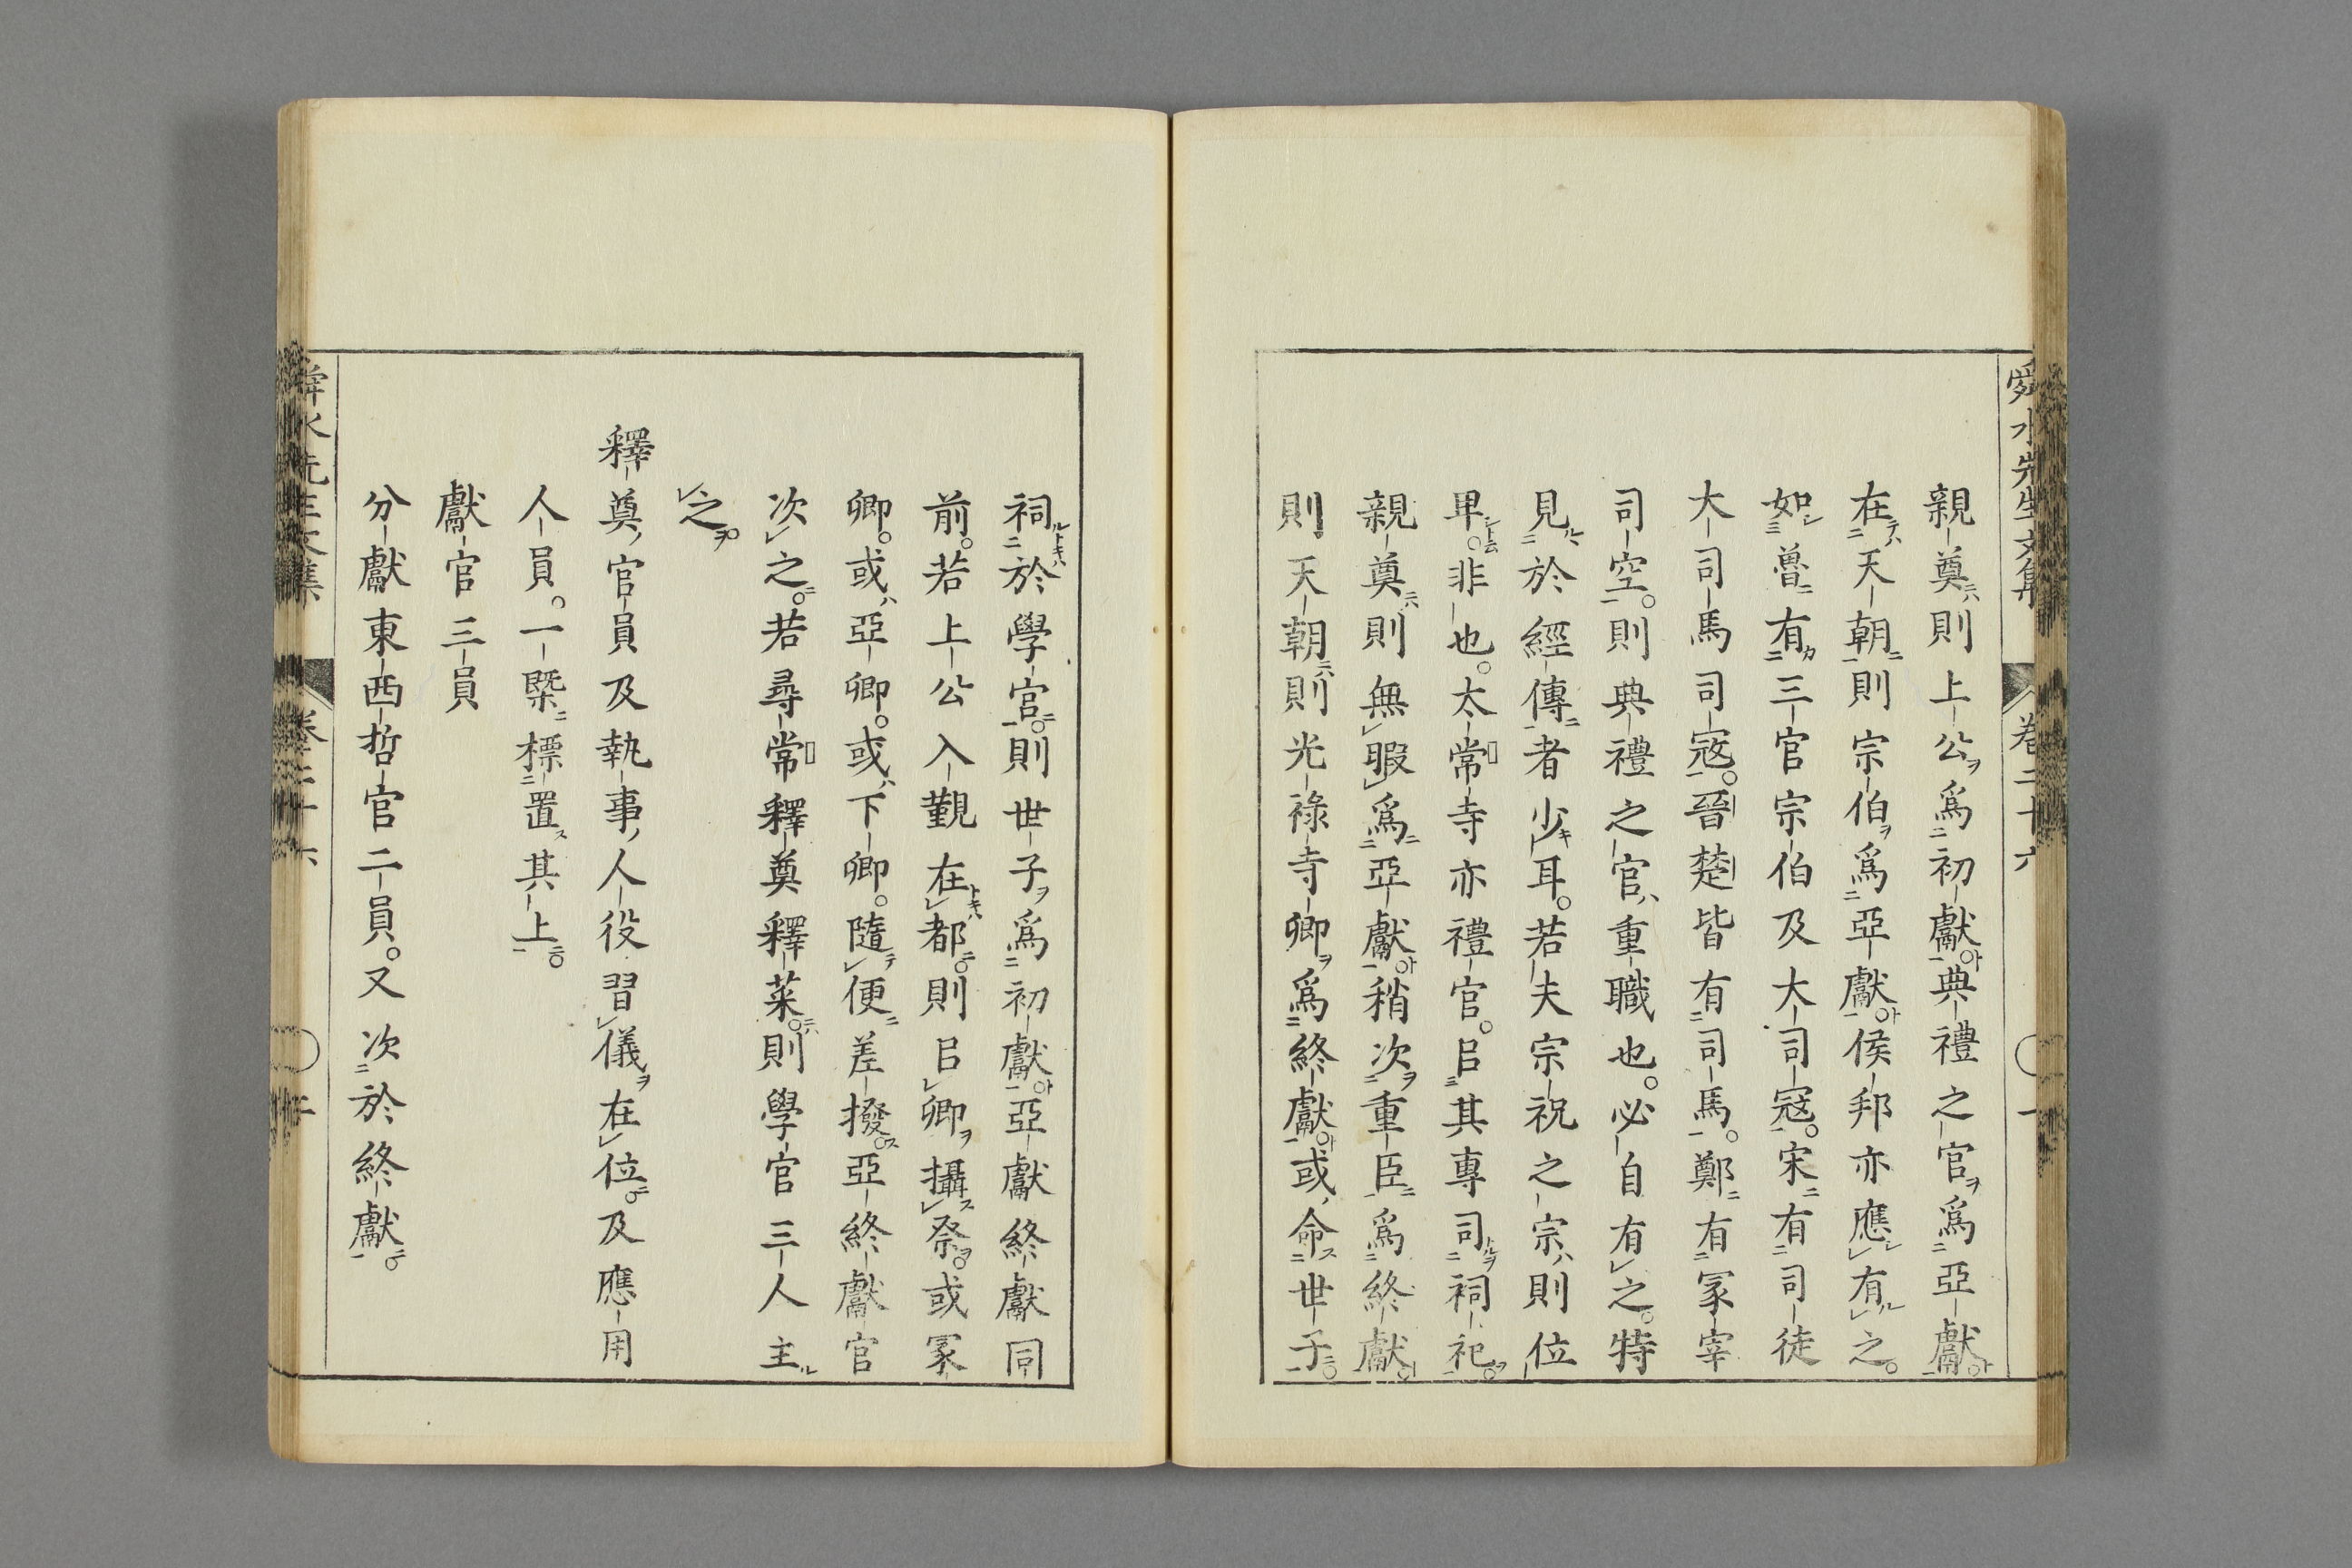 舜水先生文集 卷二十六 一
親奠則上公爲初獻。典禮之官爲亞獻。
在天朝則宗伯爲亞獻。侯邦亦應有之。
如魯有三官宗伯及大司寇。宋有司徒
大司馬司寇。晉楚皆有司馬。鄭有冢宰
司空。則典禮之官重職也。必自有之。特
見於經傳者少耳。若夫宗祝之宗則位
卑。非也。太常寺亦禮官。㠯其專司祠祀。
親奠則無暇爲亞獻。稍次重臣爲終獻。
則天朝則光祿寺卿爲終獻。或命世子。
祠於學宮。則世子爲初獻。亞獻終獻同
前。若上公入覲在都。則㠯卿攝祭。或冢
卿。或亞卿。或下卿。隨便差撥。亞終獻官
次之。若尋常釋奠釋菜。則學官三人主
之。
釋奠官員及執事人役習儀在位。及應用
人員。一槩標置其上。
獻官三員
分獻東西哲官二員。又次於終獻。
舜水先生文集 卷二十六 二